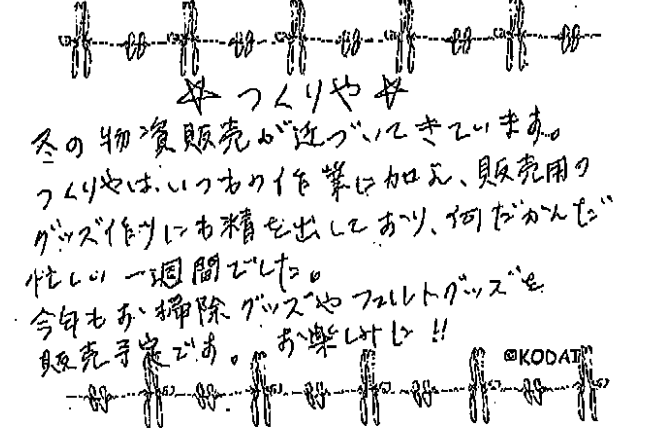 ☆ つくりや ☆
冬の物資販売が近づいてきています。
つくりやは、いつもの作業に加え、販売用の
グッズ作りにも精を出しており、何だかんだ
忙しい一週間でした。
今年もお掃除グッズやフェルトグッズを
販売予定です。お楽しみに!!
©KODAI